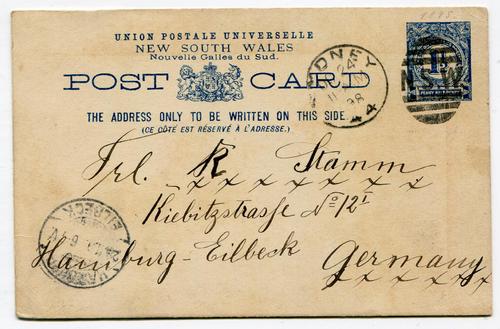 1898
UNION POSTALE UNIVERSELLE
NEW SOUTH WALES
Nouvelle Galles du Sud.
POST CARD
THE ADDRESS ONLY TO BE WRITTEN ON THIS SIDE.
(CE CÔTÉ EST RÉSERVÉ À L'ADRESSE.)
SYDNEY
24
98
44
N.S.W.
Frl. R Stamm
x x x x x x x x x
Kiebitzstrasse No 12 I
Hamburg-Eilbeck Germany
x x x x x x
EILBECK